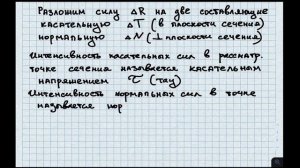 Разложим силу ΔR на две составляющие
касательную ΔT (в плоскости сечения)
нормальную ΔN (⊥ плоскости сечения)
Интенсивность касательных сил в рассматр.
точке сечения называется касательным
напряжением τ (тау)
Интенсивность нормальных сил в точке
называется нор